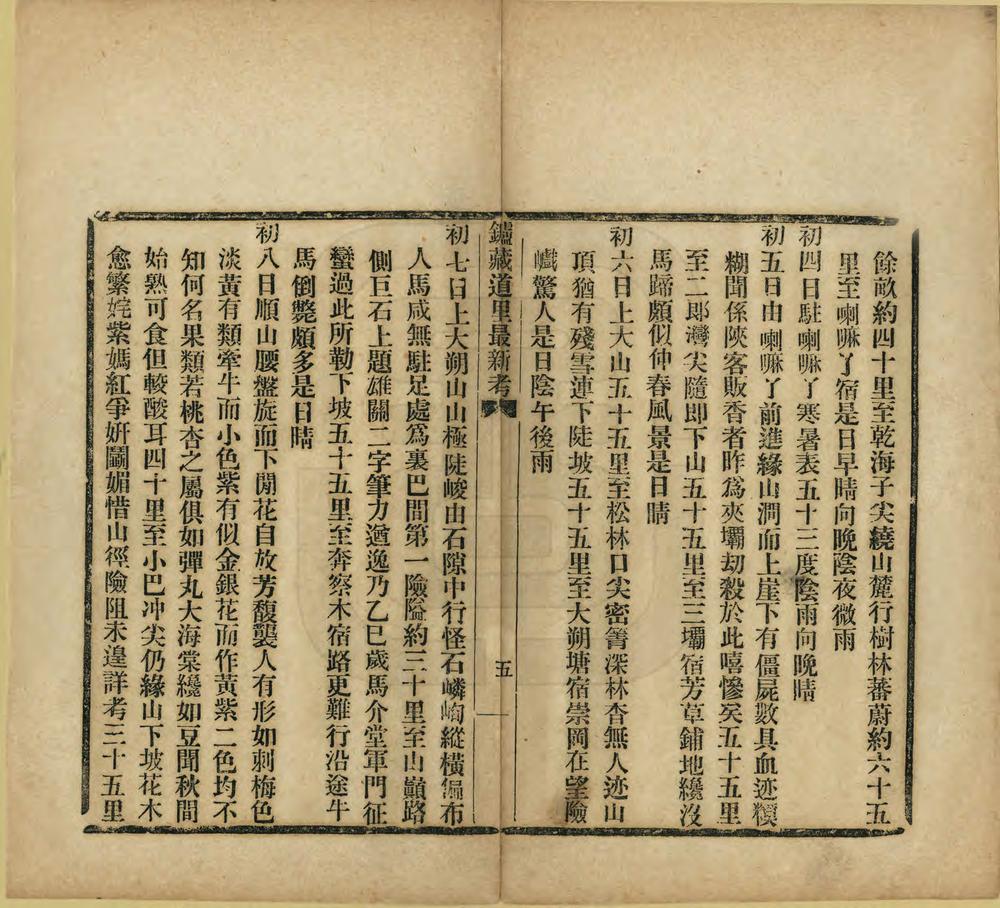 餘畝約四十里至乾海子尖繞山麓行樹林蕃蔚約六十五
里至喇嘛丫宿是日早晴向晚陰夜微雨
初四日駐喇嘛丫寒暑表五十三度陰雨向晚晴
初五日由喇嘛丫前進緣山澗而上崖下有僵屍數具血迹糢
糊聞係陝客販香者昨爲夾壩刧殺於此嘻慘矣五十五里
至二郞灣尖隨即下山五十五里至三壩宿芳草鋪地纔沒
馬蹄頗似仲春風景是日晴
初六日上大山五十五里至松林口尖密箐深林杳無人迹山
頂猶有殘雪連下陡坡五十五里至大朔塘宿崇岡在望險
巇驚人是日陰午後雨
鑪藏道里最新考
五
初七日上大朔山山極陡峻由石隙中行怪石嶙峋縱橫徧布
人馬咸無駐足處爲裏巴間第一險隘約三十里至山巔路
側巨石上題雄關二字筆力遒逸乃乙巳歲馬介堂軍門征
蠻過此所勒下坡五十五里至奔察木宿路更難行沿途牛
馬倒斃頗多是日晴
初八日順山腰盤旋而下閒花自放芳馥襲人有形如刺梅色
淡黃有類牽牛而小色紫有似金銀花而作黃紫二色均不
知何名果類若桃杏之屬俱如彈丸大海棠纔如豆聞秋間
始熟可食但較酸耳四十里至小巴冲尖仍緣山下坡花木
愈繁姹紫嫣紅爭妍鬭媚惜山徑險阻未遑詳考三十五里